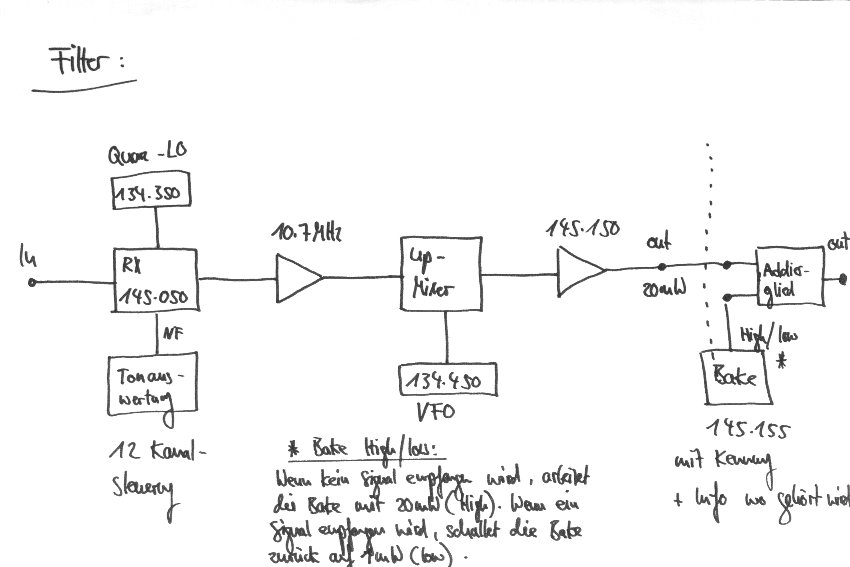 Filter :
Quarz-LO
134.350
In
RX
145.050
NF
Tonaus-
wertung
12 Kanal-
Steuerung
10.7 MHz
Up-
Mixer
134.450
VFO
145.150
out
20mW
Addier-
glied
out
High/low
*
Bake
145.155
mit Kennung
+ Info wo gehört wird
* Bake High/low:
Wenn kein Signal empfangen wird, arbeitet
die Bake mit 20mW (High). Wenn ein
Signal empfangen wird, schaltet die Bake
zurück auf 1mW (low).